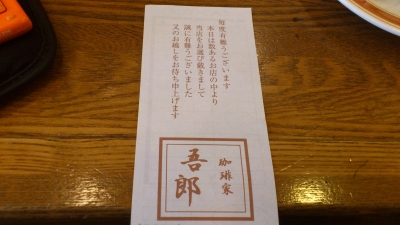 毎度有難うございます
本日は数あるお店の中より
当店をお選び戴きまして
誠に有難うございました
又のお越しをお待ち申上げます
珈琲家
吾郎